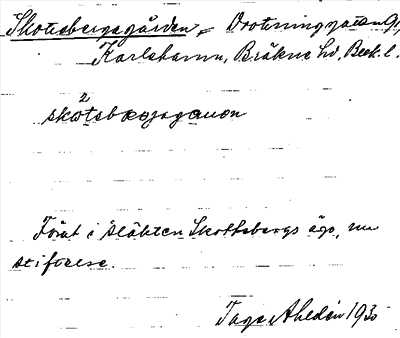 Skottsbergsgården, Drottninggatan 91,
Karlshamn, Bräkne hd, Blek. l.
2
skotsbærjsgaɳən
Förut i släkten Skottsbergs ägo, nu
stiftelse.
Tage Ahldén 1930